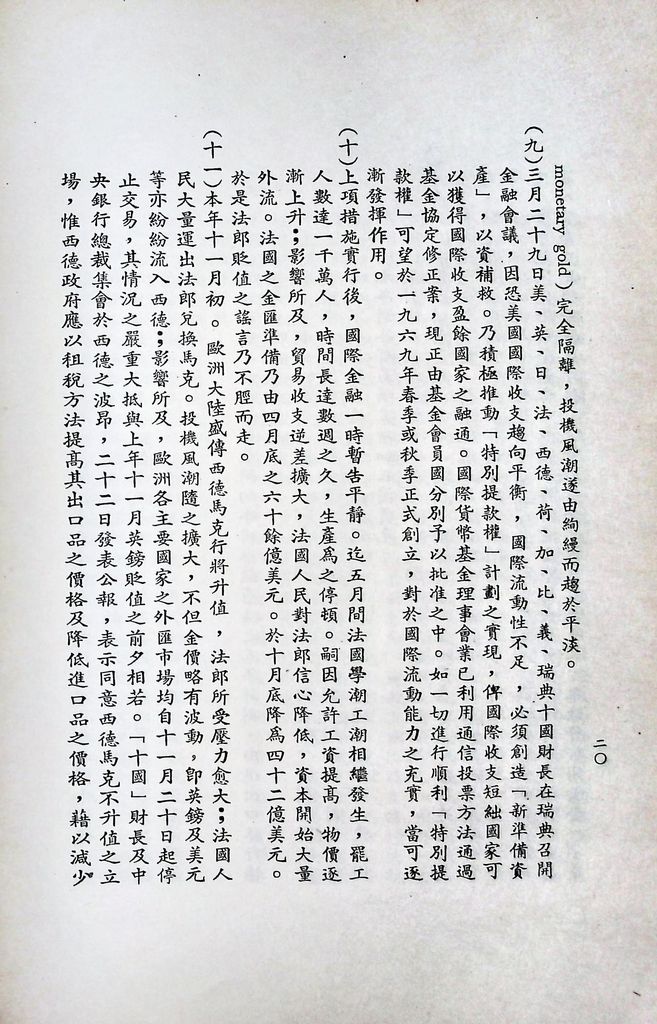 monetary gold）完全隔離，投機風潮遂由絢縵而趨於平淡。
（九）三月二十九日美、英、日、法、西德、荷、加、比、義、瑞典十國財長在瑞典召開
金融會議，因恐美國國際收支趨向平衡，國際流動性不足，必須創造「新準備資
產」，以資補救。乃積極推動「特別提款權」計劃之實現，俾國際收支短絀國家可
以獲得國際收支盈餘國家之融通。國際貨幣基金理事會業已利用通信投票方法通過
基金協定修正案，現正由基金會員國分別予以批准之中。如一切進行順利「特別提
款權」可望於一九六九年春季或秋季正式創立，對於國際流動能力之充實，當可逐
漸發揮作用。
（十）上項措施實行後，國際金融一時暫告平靜。迄五月間法國學潮工潮相繼發生，罷工
人數達一千萬人，時間長達數週之久，生產爲之停頓。嗣因允許工資提高，物價逐
漸上升；影響所及，貿易收支逆差擴大，法國人民對法郎信心降低，資本開始大量
外流。法國之金匯準備乃由四月底之六十餘億美元。於十月底降爲四十二億美元。
於是法郎貶值之謠言乃不脛而走。
（十一）本年十一月初。歐洲大陸盛傳西德馬克行將升值，法郎所受壓力愈大；法國人
民大量運出法郎兌換馬克。投機風潮隨之擴大，不但金價略有波動，卽英鎊及美元
等亦紛紛流入西德；影響所及，歐洲各主要國家之外匯市場均自十一月二十日起停
止交易，其情況之嚴重大抵與上年十一月英鎊貶值之前夕相若。「十國」財長及中
央銀行總裁集會於西德之波昂，二十二日發表公報，表示同意西德馬克不升值之立
場，惟西德政府應以租稅方法提高其出口品之價格及降低進口品之價格，藉以減少
二〇